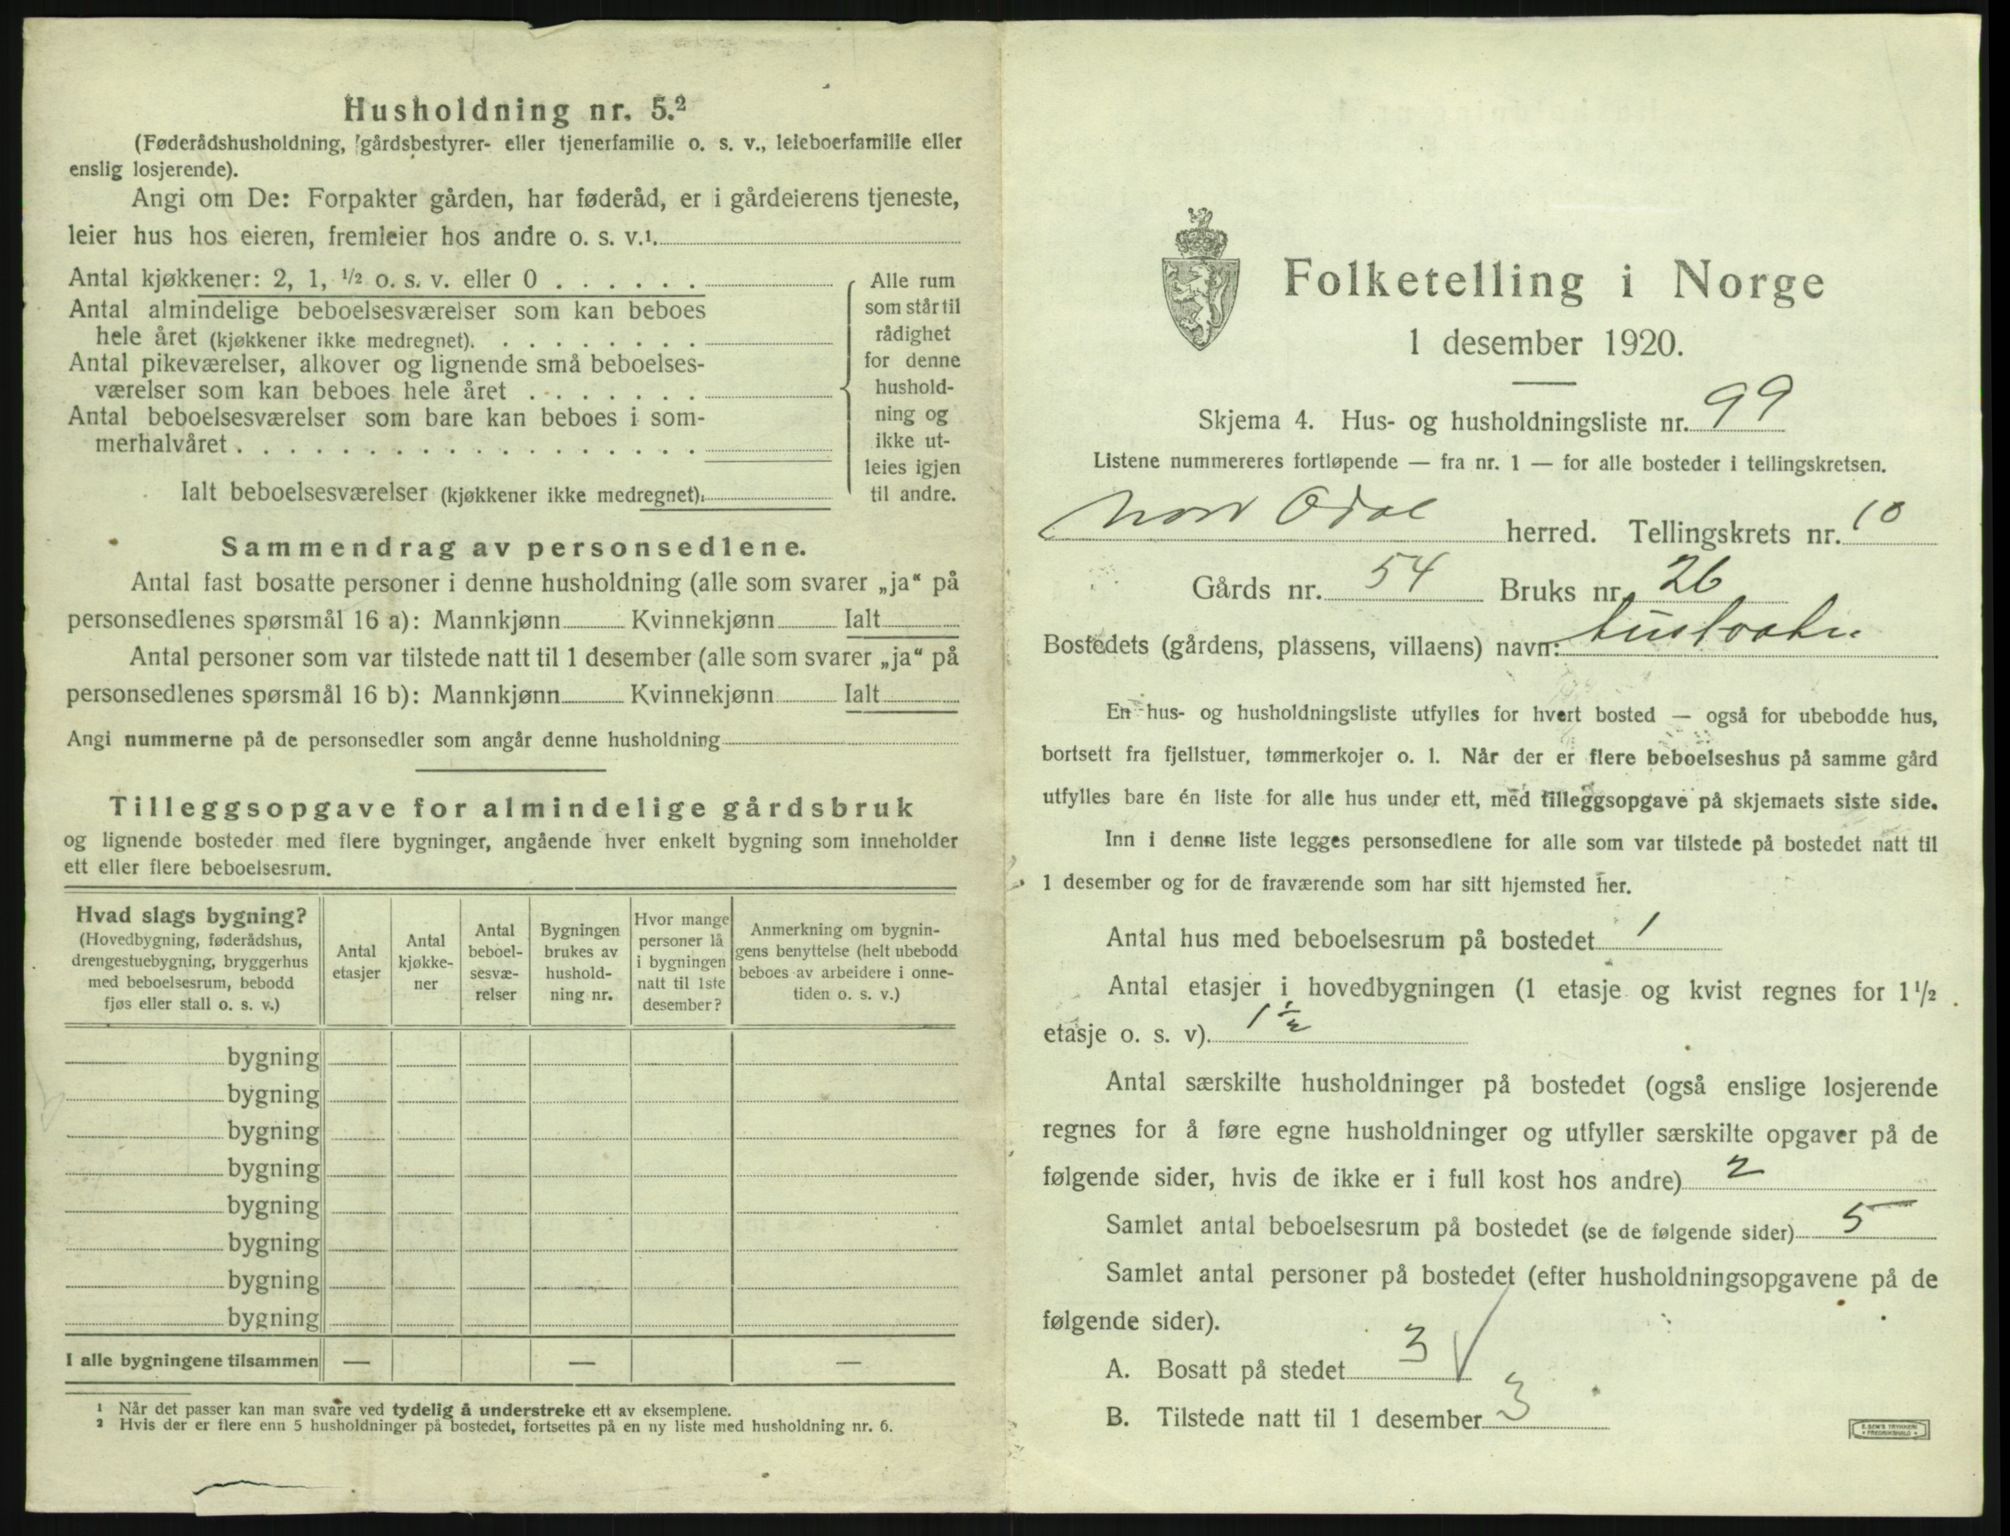 Husholdning nr. 5.²
(Føderådshusholdning, gårdsbestyrer- eller tjenerfamilie o. s. v., leieboerfamilie eller
enslig losjerende).
Angi om De: Forpakter gården, har føderåd, er i gårdeierens tjeneste,
leier hus hos eieren, fremleier hos andre o. s. v.¹.
Antal kjøkkener: 2, 1, ½ o. s. v. eller 0 . . . . . .
Antal almindelige beboelsesværelser som kan beboes
hele året (kjøkkener ikke medregnet). . . . . . . . .
Antal pikeværelser, alkover og lignende små beboelses-
værelser som kan beboes hele året . . . . . . .
Antal beboelsesværelser som bare kan beboes i som-
merhalvåret . . . . . . . . . . . . . . . . .
Ialt beboelsesværelser (kjøkkener ikke medregnet).
Alle rum
som står til
rådighet
for denne
hushold-
ning og
ikke ut-
leies igjen
til andre.
Sammendrag av personsedlene.
Antal fast bosatte personer i denne husholdning (alle som svarer „ja“ på
personsedlenes spørsmål 16 a): Mannkjønn Kvinnekjønn Ialt
Antal personer som var tilstede natt til 1 desember (alle som svarer „ja“ på
personsedlenes spørsmål 16 b): Mannkjønn Kvinnekjønn Ialt
Angi nummerne på de personsedler som angår denne husholdning
Tilleggsopgave for almindelige gårdsbruk
og lignende bosteder med flere bygninger, angående hver enkelt bygning som inneholder
ett eller flere beboelsesrum.
Hvad slags bygning?
(Hovedbygning, føderådshus,
drengestuebygning, bryggerhus
med beboelsesrum, bebodd
fjøs eller stall o. s. v.)
Antal
etasjer
Antal
kjøkke-
ner
Antal
beboel-
sesvæ-
relser
Bygningen
brukes av
hushold-
ning nr.
Hvor mange
personer lå
i bygningen
natt til 1ste
desember?
Anmerkning om bygnin-
gens benyttelse (helt ubebodd
beboes av arbeidere i onne-
tiden o. s. v.)
bygning
bygning
bygning
bygning
bygning
bygning
bygning
bygning
I alle bygningene tilsammen — — —
¹ Når det passer kan man svare ved tydelig å understreke ett av eksemplene.
² Hvis der er flere enn 5 husholdninger på bostedet, fortsettes på en ny liste med husholdning nr. 6.
Folketelling i Norge
1 desember 1920.
Skjema 4. Hus- og husholdningsliste nr. 99
Listene nummereres fortløpende — fra nr. 1 — for alle bosteder i tellingskretsen.
Nord Odal herred. Tellingskrets nr. 10
Gårds nr. 54 Bruks nr. 26
Bostedets (gårdens, plassens, villaens) navn:
En hus- og husholdningsliste utfylles for hvert bosted — også for ubebodde hus,
bortsett fra fjellstuer, tømmerkojer o. l. Når der er flere beboelseshus på samme gård
utfylles bare én liste for alle hus under ett, med tilleggsopgave på skjemaets siste side.
Inn i denne liste legges personsedlene for alle som var tilstede på bostedet natt til
1 desember og for de fraværende som har sitt hjemsted her.
Antal hus med beboelsesrum på bostedet 1
Antal etasjer i hovedbygningen (1 etasje og kvist regnes for 1½
etasje o. s. v). 1½
Antal særskilte husholdninger på bostedet (også enslige losjerende
regnes for å føre egne husholdninger og utfyller særskilte opgaver på de
følgende sider, hvis de ikke er i full kost hos andre) 2
Samlet antal beboelsesrum på bostedet (se de følgende sider) 5
Samlet antal personer på bostedet (efter husholdningsopgavene på de
følgende sider).
A. Bosatt på stedet 3
B. Tilstede natt til 1 desember 3